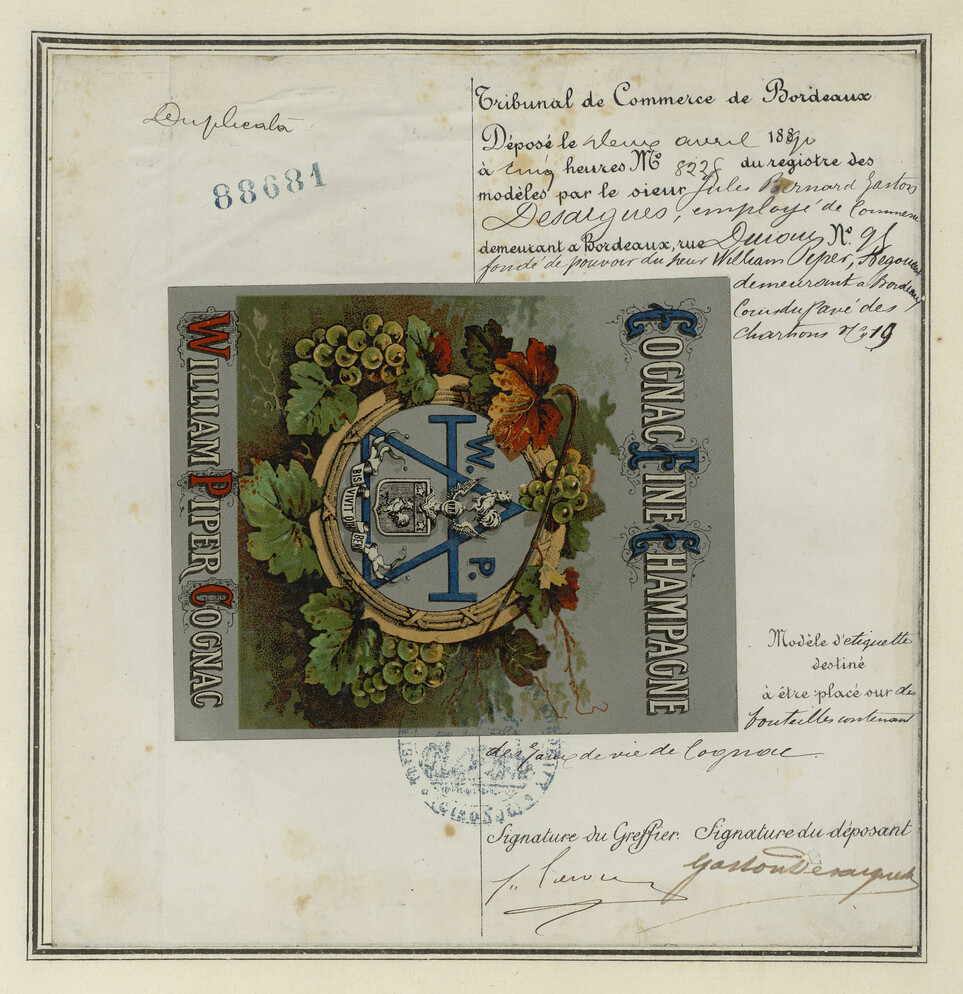 Duplicata
88681
Tribunal de Commerce de Bordeaux
Déposé le deux avril 1880
à cinq heures No 8228 du registre des
modèles par le sieur Jules Bernard Gaston
Desargues, employé de Commerce
demeurant à Bordeaux, rue No.
fondé de pouvoir du sieur William Piper, Négociant
demeurant à Bordeaux
Cours du Pavé des
Chartrons No 19
WILLIAM PIPER COGNAC
W.
P.
BIS VIVIT QUI BENE
COGNAC FINE CHAMPAGNE
Modèle d'etiquette
destiné
à être placé sur des
bouteilles contenant
des Eaux de vie de Cognac.
GIRONDE
Signature du Greffier. Signature du déposant
Gaston Desargues